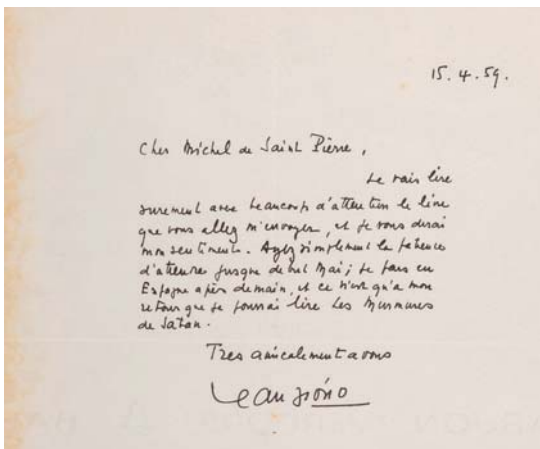 15.4.59.
Cher Michel de Saint Pierre,
Je vais lire
surement avec beaucoup d'attention le livre
que vous allez m'envoyer, et je vous dirai
mon sentiment. Ayez simplement la patience
d'attendre jusque debut Mai; je pars en
Espagne après demain, et ce n'est qu'a mon
retour que je pourrai lire Les Murmures
de Satan.
Tres amicalement a vous
Jean Giono